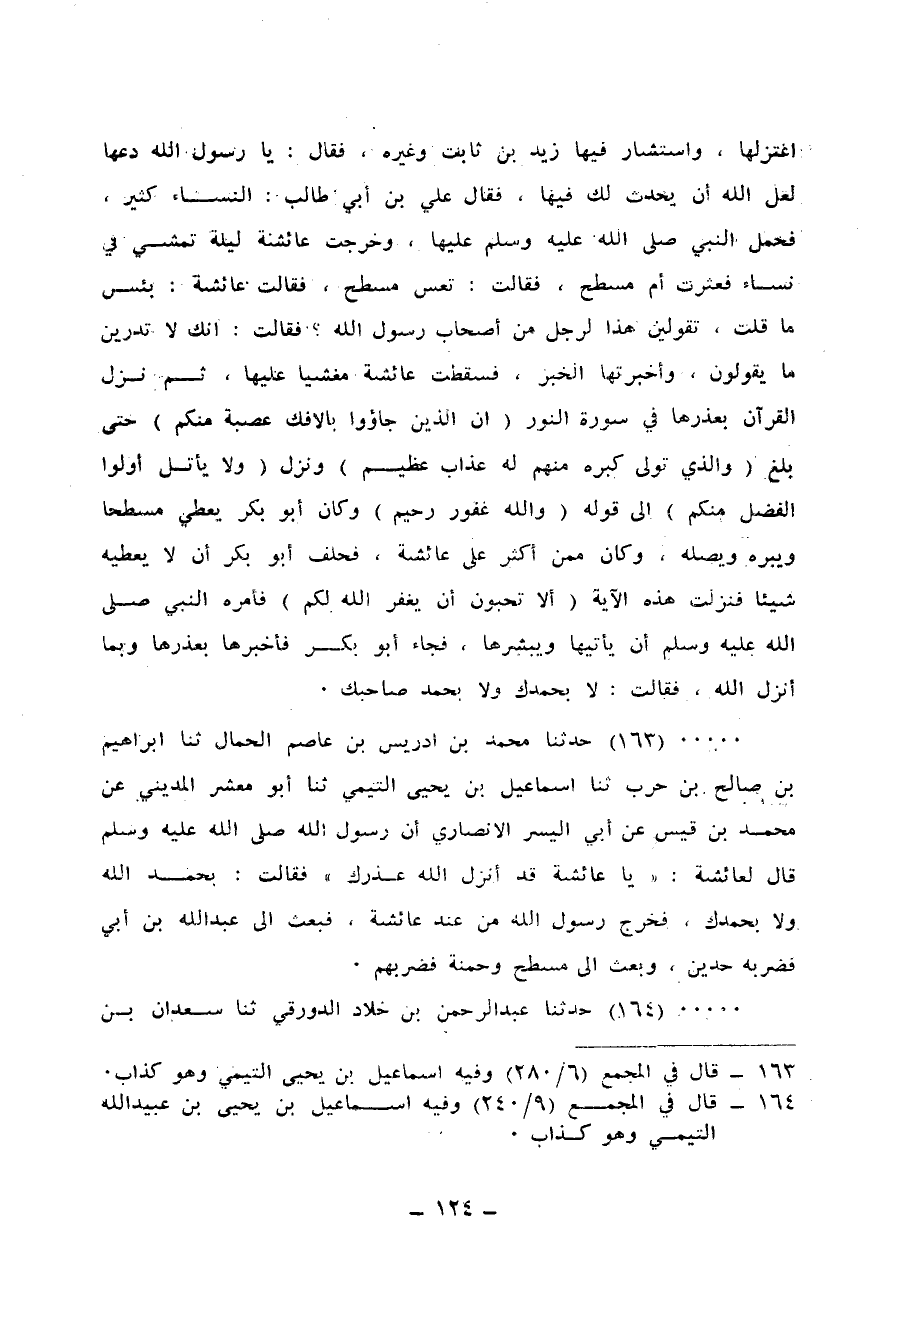 اغتزلها ، واستشار فيها زيد بن ثابت وغيره ، فقال : يا رسول الله دعها
لعل الله أن يحدث لك فيها ، فقال علي بن أبي طالب : النســـاء كثير ،
فحمل النبي صلى الله عليه وسلم عليها ، وخرجت عائشة ليلة تمشـي في
نسـاء فعثرت أم مسطح ، فقالت : تعس مسطح ، فقالت عائشة : بئـس
ما قلت ، تقولين هذا لرجل من أصحاب رسول الله ؟ فقالت : انك لا تدرين
ما يقولون ، وأخبرتها الخبر ، فسقطت عائشة مغشيا عليها ، ثـم نـزل
القرآن بعذرها في سورة النور ( ان الذين جاؤوا بالافك عصبة منكم ) حتى
بلغ ( والذي تولى كبره منهم له عذاب عظيـم ) ونزل ( ولا يأتـل أولوا
الفضل منكم ) الى قوله ( والله غفور رحيم ) وكان أبو بكر يعطي مسطحا
ويبره ويصله ، وكان ممن أكثر على عائشة ، فحلف أبو بكر أن لا يعطيه
شيئا فنزلت هذه الآية ( ألا تحبون أن يغفر الله لكم ) فأمره النبي صـلى
الله عليه وسلم أن يأتيها ويبشرها ، فجاء أبو بكــر فأخبرها بعذرها وبما
أنزل الله ، فقالت : لا بحمدك ولا بحمد صاحبك ٠
٠٠٠٠٠ (١٦٣) حدثنا محمد بن ادريس بن عاصم الحمال ثنا ابراهيم
بن صالح بن حرب ثنا اسماعيل بن يحيى التيمي ثنا أبو معشر المديني عن
محمـد بن قيس عن أبي اليسر الانصاري أن رسول الله صلى الله عليه وسلم
قال لعائشة : « يا عائشة قد أنزل الله عـذرك » فقالت : بحمـــد الله
ولا بحمدك ، فخرج رسول الله من عند عائشة ، فبعث الى عبدالله بن أبي
فضربه حدين ، وبعث الى مسطح وحمنة فضربهم ٠
٠٠٠٠٠ (١٦٤) حدثنا عبدالرحمن بن خلاد الدورقي ثنا سـعدان بـن
١٦٣ ـ قال في المجمع (٢٨٠/٦) وفيه اسماعيل بن يحيى التيمي وهو كذاب٠
١٦٤ ـ قال في المجمــع (٢٤٠/٩) وفيه اســماعيل بن يحيى بن عبيدالله
التيمـي وهو كـذاب ٠
ـ ١٢٤ ـ